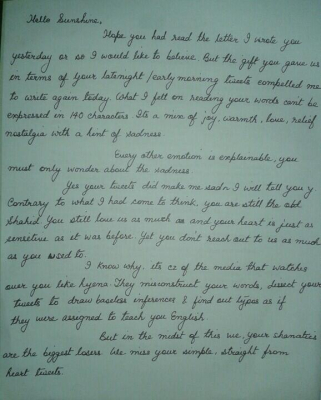 Hello Sunshine,
Hope you had read the letter I wrote you
yesterday or so I would like to believe. But the gift you gave us
in terms of your latenight / early morning tweets compelled me
to write again today. What I felt on reading your words cant be
expressed in 140 characters. Its a mix of joy, warmth, love, relief
nostalgia with a hint of sadness.
Every other emotion is explainable, you
must only wonder about the sadness.
Yes your tweets did make me sad n I will tell you y
Contrary to what I had come to think, you are still the old
Shahid. You still love us as much as and your heart is just as
sensitive as it was before. Yet you dont reach out to us as much
as you used to.
I know why. its cz of the media that watches
over you like hyena. They misconstruct your words, dissect your
tweets to draw baseless inferences & find out typos as if
they were assigned to teach you English.
But in the midst of this we, your shanatics
are the biggest losers. We miss your simple, straight from
heart tweets.